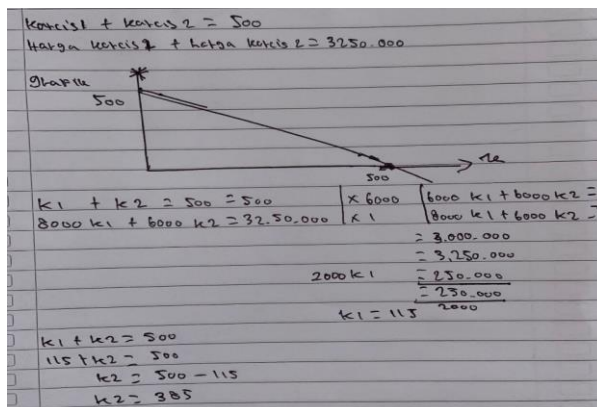 karcis1 + karcis 2 = 500
Harga karcis 1 + harga karcis 2 = 3250.000
grafik
500
500
k1 + k2 = 500 = 500 | x 6000 | 6000 k1 + 6000 k2 =
8000 k1 + 6000 k2 = 32.50.000 | x 1 | 8000 k1 + 6000 k2 =
= 3.000.000
= 3,250.000
2000 k1 = 250.000
= 230.000
2000
k1 = 115
k1 + k2 = 500
115 + k2 = 500
k2 = 500 - 115
k2 = 385